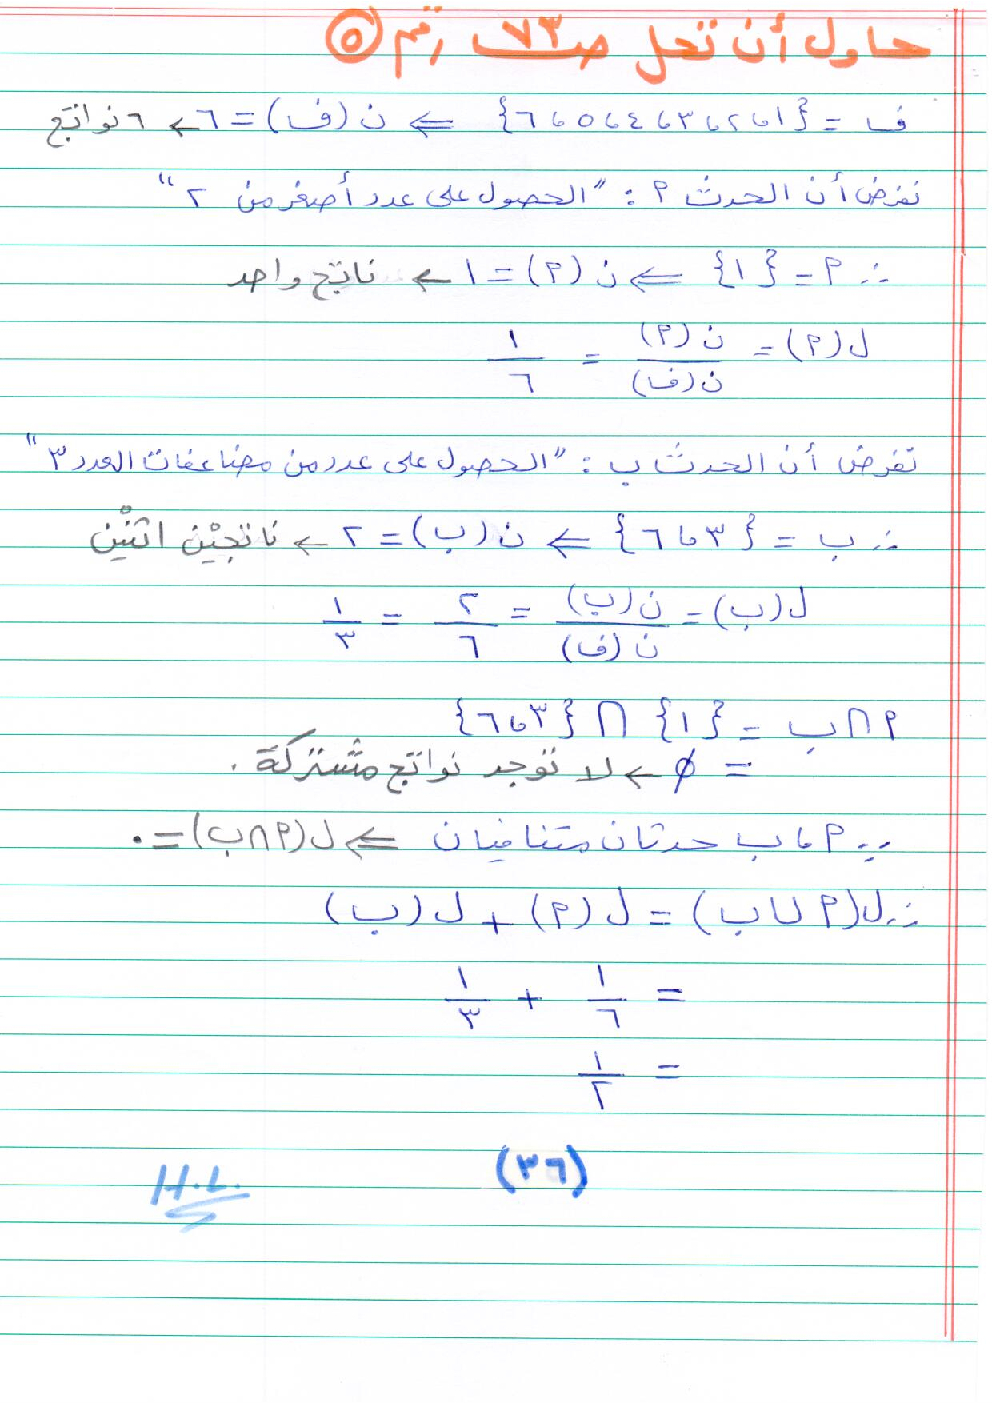 حاول أن تحل ص ٧٣ رقم ⑤
ف = {١ ، ٢ ، ٣ ، ٤ ، ٥ ، ٦} ⇐ ن (ف) = ٦ ← ٦ نواتج
نفرض أن الحدث ٢ : "الحصول على عدد أصغر من ٢"
∴ ٢ = {١} ⇐ ن (٢) = ١ ← ناتج واحد
ل (٢) = ن (٢) / ن (ف) = ١ / ٦
نفرض أن الحدث ب : "الحصول على عدد من مضاعفات العدد ٣"
∴ ب = {٣ ، ٦} ⇐ ن (ب) = ٢ ← ناتجين اثنين
ل (ب) = ن (ب) / ن (ف) = ٢ / ٦ = ١ / ٣
٢ ∩ ب = {١} ∩ {٣ ، ٦}
= ∅ ← لا توجد نواتج مشتركة .
∵ ٢ ، ب حدثان متنافيان ⇐ ل (٢ ∩ ب) = ٠
∴ ل (٢ ∪ ب) = ل (٢) + ل (ب)
= ١ / ٦ + ١ / ٣
= ١ / ٢
(٣٦)
H.L.